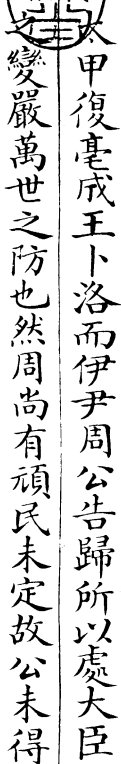 太甲復亳成王卜洛而伊尹周公告歸所以處大臣
之變嚴萬世之防也然周尚有頑民未定故公未得